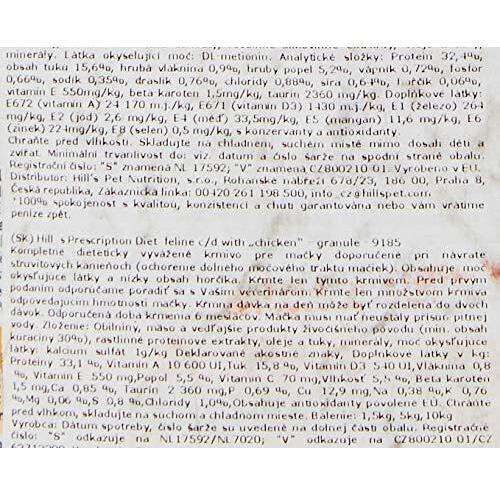 minerály. Látka okyselující moč: DL-metionin. Analytické složky: Protein 32,4%,
obsah tuku 15,6%, hrubá vláknina 0,9%, hrubý popel 5,2%, vápník 0,72%, fosfor
0,66%, sodík 0,35%, draslík 0,76%, chloridy 0,88%, síra 0,64%, hořčík 0,06%,
vitamin E 550mg/kg, beta-karoten 1,5mg/kg, taurin 2360 mg/kg. Doplňkové látky:
E672 (vitamin A) 24 170 m.j./kg, E671 (vitamin D3) 1430 m.j./kg, E1 (železo) 264
mg/kg, E2 (jód) 2,6 mg/kg, E4 (měď) 33,5mg/kg, E5 (mangan) 11,6 mg/kg, E6
(zinek) 224mg/kg, E8 (selen) 0,5 mg/kg, s konzervanty a antioxidanty.
Chraňte před vlhkosti. Skladujte na chladnem, suchém místě mimo dosah děti a
zvířat. Minimální trvanlivost do: viz. datum a číslo šarže na spodní straně obalu.
Registrační číslo: "S" znamená NL 17592; "V" znamená CZ800210-01. Vyrobeno v EU.
Distributor: Hill's Pet Nutrition, s.r.o., Rohanské nábřeží 678/23, 186 00, Praha 8,
Česká republika, Zákaznická linka: 00420 261 198 500, info_cz@hillspet.com.
*100% spokojenost s kvalitou, konzistencí a chutí garantována nebo vám vrátíme
peníze zpět.
(SK) Hill's Prescription Diet feline c/d with „chicken" - granule - 9185
Kompletné dieteticky vyvážené krmivo pre mačky doporučené pri návrate
struvitových kameňoch (ochorenie dolného močového traktu mačiek). Obsahuje moč
okysľujúce látky a nízky obsah horčíka. Kŕmte len týmto krmivom. Pred prvým
podaním odporúčame poradiť sa s Vašim veterinárom. Kŕmte len množstvom krmiva
odpovedajúcim hmotnosti mačky. Kŕmna dávka na deň môže byť rozdelená do dvoch
dávok. Odporučená doba kŕmenia 6 Mačka musí mať neustály prísun pitnej
vody. Zloženie: Obilniny, mäso a vedľajšie produkty živočíšneho pôvodu (min. obsah
kuraciny 30%), rastlinné proteinove extrakty, oleje a tuky, minerály, moč okysľujúce
látky: kalcium sulfát 1g/kg Deklarované akostné znaky, Doplnkové látky v kg:
Proteíny 33,1 %, Vitamin A 10 600 UI,Tuk 15,8 %, Vitamin D3 540 UI,Vláknina 0,8
%, Vitamin E 550 mg,Popol 5,5 %, Vitamin C 70 mg,Vlhkosť 5,5 %, Beta karotén
1,5 mg,Ca 0,85 % Taurín 2 360 mg,P 0,69 %, Cu 12,9 mg,Na 0,38 %,K 0,76
%,Mg 0,06 %,S 0,8 %,Chloridy 1,0%,Obsahuje antioxidanty povolené EÚ. Chráňte
pred vlhkom, skladujte na suchom a chladnom mieste. Balenie: 1,5kg, 5kg, 10kg
Výrobca: Dátum spotreby, číslo šarže su uvedené na dolnej časti obalu. Registračné
číslo: "S" odkazuje na NL17592/NL7020; "V" odkazuje na CZ800210-01/CZ